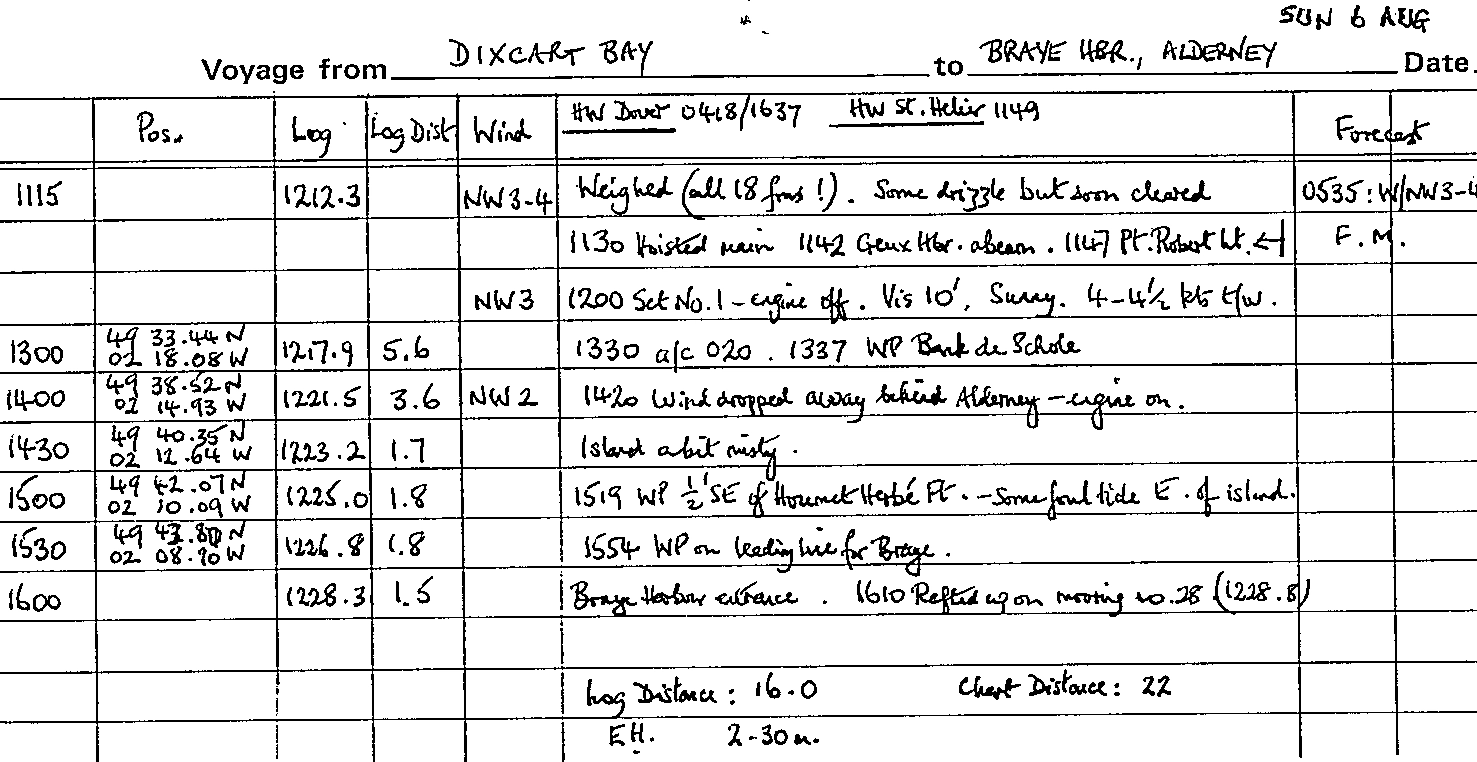 SUN 6 AUG
Voyage from DIXCART BAY to BRAYE HBR., ALDERNEY Date
Pos. Log Log Dist Wind HW Dover 0418/1637 HW St. Helier 1149 Forecast
1115 1212.3 NW 3-4 Weighed (all 18 fms!). Some drizzle but soon cleared 0535: W/NW3-4
1130 Hoisted main 1142 Creux Hbr. abeam. 1147 Pt. Robert Lt. F.M.
NW3 1200 Set No.1 - engine off. Vis 10', Sunny. 4-4½ kts t/w.
49 33.44 N
1300 02 18.08 W 1217.9 5.6 1330 a/c 020. 1337 WP Bank de Schole
49 38.52 N
1400 02 14.93 W 1221.5 3.6 NW 2 1420 Wind dropped away behind Alderney - engine on.
49 40.35 N
1430 02 12.64 W 1223.2 1.7 Island a bit misty.
49 42.07 N
1500 02 10.09 W 1225.0 1.8 1519 WP ½' SE of Houmet Herbé Pt. - Some foul tide E. of island.
49 43.80 N
1530 02 08.90 W 1226.8 1.8 1554 WP on leading line for Braye.
1600 1228.3 1.5 Braye Harbour entrance. 1610 Rafted up on mooring no. 28 (1228.8)
Log Distance: 16.0 Chart Distance: 22
E.H. 2-30m.